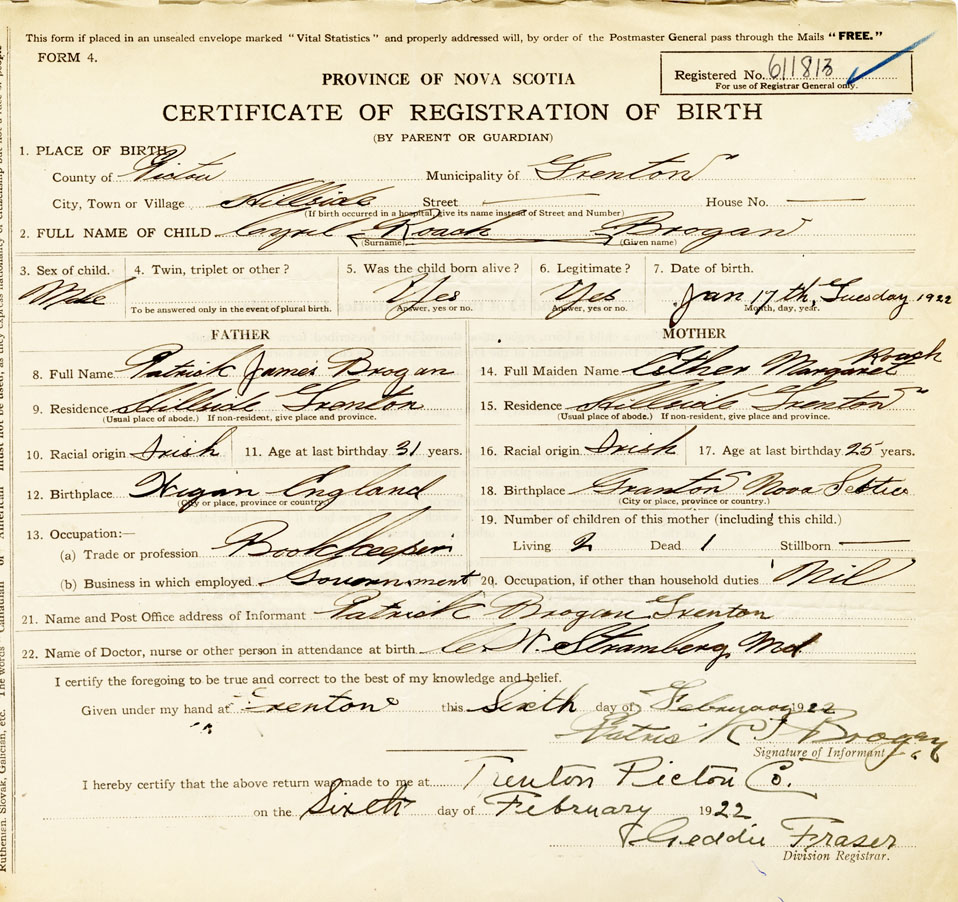 This form if placed in an unsealed envelope marked "Vital Statistics" and properly addressed will, by order of the Postmaster General pass through the Mails "FREE."
FORM 4.
Registered No. 611813
For use of Registrar General only.
PROVINCE OF NOVA SCOTIA
CERTIFICATE OF REGISTRATION OF BIRTH
(BY PARENT OR GUARDIAN)
1. PLACE OF BIRTH
County of Pictou Municipality of Trenton
City, Town or Village Hillside Street — House No. —
(If birth occurred in a hospital, give its name instead of Street and Number)
2. FULL NAME OF CHILD Cyril Roach Brogan
(Surname) (Given name)
3. Sex of child. 4. Twin, triplet or other? 5. Was the child born alive? 6. Legitimate? 7. Date of birth.
Male Yes Yes Jan 17th, Tuesday 1922
To be answered only in the event of plural birth. Answer, yes or no. Answer, yes or no. Month, day, year.
FATHER
8. Full Name Patrick James Brogan
9. Residence Hillside Trenton
(Usual place of abode.) If non-resident, give place and province.
10. Racial origin Irish 11. Age at last birthday 31 years.
12. Birthplace Wigan England
(City or place, province or country)
13. Occupation:—
(a) Trade or profession Bookkeeper
(b) Business in which employed Government
MOTHER
14. Full Maiden Name Esther Margaret Roach
15. Residence Hillside Trenton
(Usual place of abode.) If non-resident, give place and province.
16. Racial origin Irish 17. Age at last birthday 25 years.
18. Birthplace Granton Nova Scotia
(City or place, province or country.)
19. Number of children of this mother (including this child.)
Living 2 Dead 1 Stillborn —
20. Occupation, if other than household duties Nil
21. Name and Post Office address of Informant Patrick Brogan Trenton
22. Name of Doctor, nurse or other person in attendance at birth. C. W. Stramberg, Md
I certify the foregoing to be true and correct to the best of my knowledge and belief.
Given under my hand at Trenton this Sixth day of February 1922
Patrick J Brogan
Signature of Informant
I hereby certify that the above return was made to me at Trenton Pictou Co.
on the Sixth day of February 1922
Geddie Fraser
Division Registrar.
Ruthenian, Slovak, Galician, etc. The words Canadian or American must not be used, as they express nationality or citizenship but not a race of people